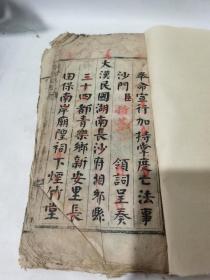 奉命宣行加持掌度亡法事
沙門臣 領詞呈奏
大漢民國湖南長沙府湘鄉縣
三十四都青樂鄉新安里長
田保南岸廟隍祠下煙竹堂